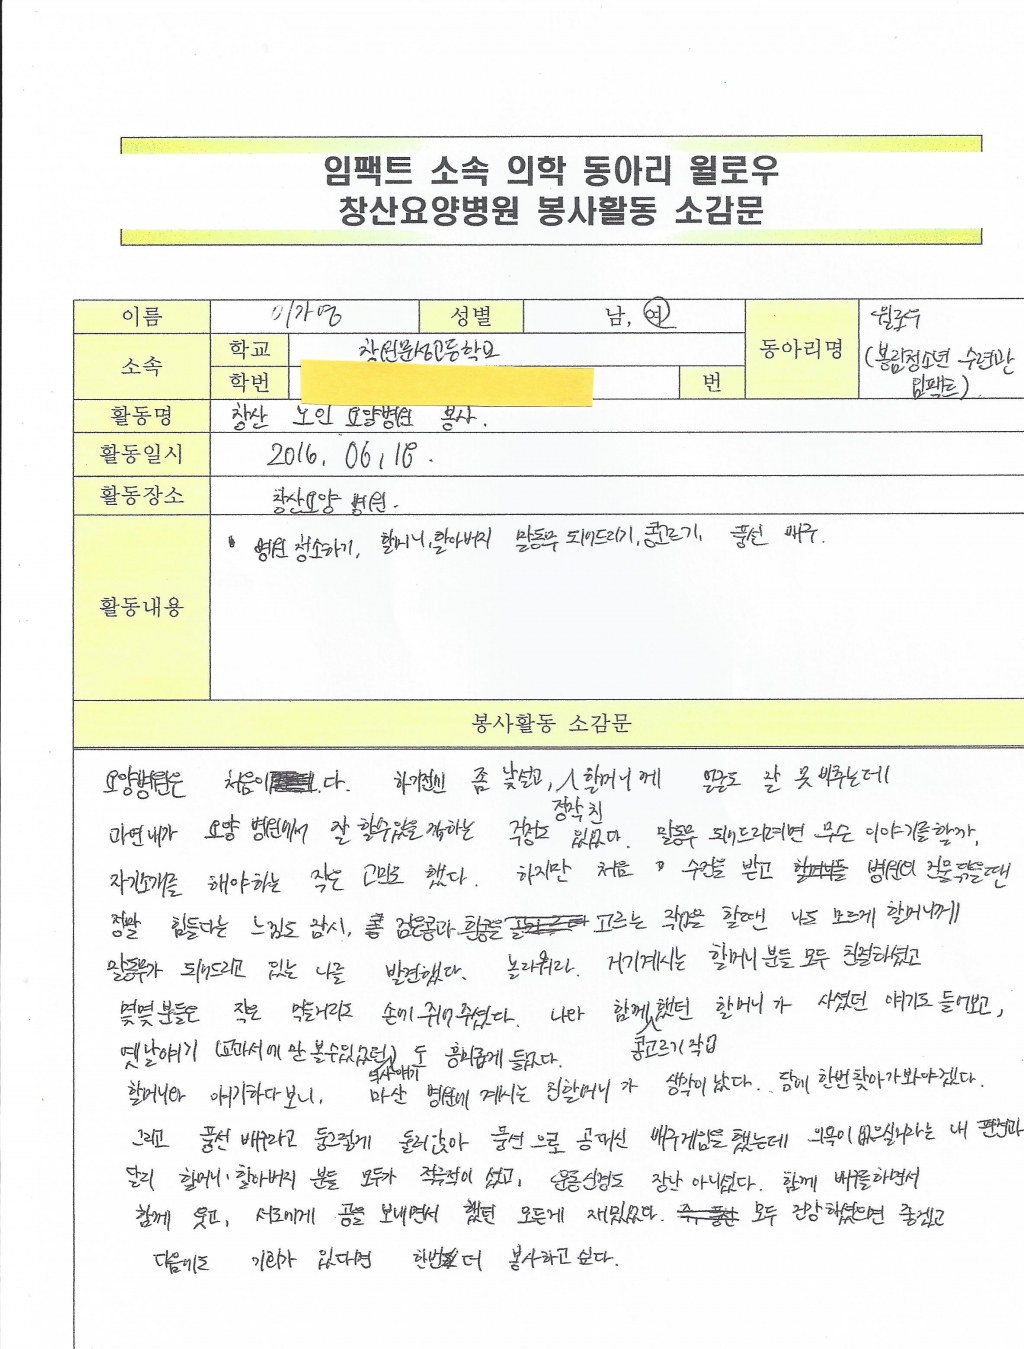 임팩트 소속 의학 동아리 윌로우
창산요양병원 봉사활동 소감문
이름 이가영 성별 남, 여 동아리명 윌로우 (봉림청소년 수련관 임팩트)
소속 학교 창원문성고등학교
학번 번
활동명 창산 노인 요양병원 봉사.
활동일시 2016. 06. 18.
활동장소 창산요양 병원.
활동내용 병원 청소하기, 할머니, 할아버지 말동무 되어드리기, 콩고르기, 풍선 배구.
봉사활동 소감문
요양병원은 처음이다. 하기전엔 좀 낯설고, 정작 친할머니께 얼굴도 잘 못 비추는데
과연 내가 요양 병원에서 잘 할수있을 걱정도 있었다. 말동무 되어드리려면 무슨 이야기를 할까,
자기소개를 해야하는 작은 고민도 했다. 하지만 처음 수건을 받고 병원의 건물 닦을땐
정말 힘들다는 느낌도 잠시, 검은콩과 흰콩을 고르는 작업을 할땐 나도 모르게 할머니께
말동무가 되어드리고 있는 나를 발견했다. 놀라워라. 거기계시는 할머니 분들 모두 친절하셨고
몇몇 분들은 작은 먹을거리도 손에 쥐어 주셨다. 나와 함께 콩고르기 작업 했던 할머니가 사셨던 얘기도 들어보고,
옛날얘기 (교과서에만 볼수있었던) 역사얘기도 흥미롭게 들었다.
할머니와 얘기하다 보니, 마산 병원에 계시는 친할머니가 생각이 났다. 담에 한번 찾아가봐야겠다.
그리고 풍선 배구라고 둥그렇게 둘러앉아 풍선으로 공대신 배구게임을 했는데 의욕이 없으실거라는 내 편견과
달리 할머니·할아버지 분들 모두가 적극적이 셨고, 운동신경도 장난 아니셨다. 함께 배구를하면서
함께 웃고, 서로에게 공을 보내면서 했던 모든게 재밌었다. 모두 건강하셨으면 좋겠고
다음에도 기회가 있다면 한번 더 봉사하고 싶다.